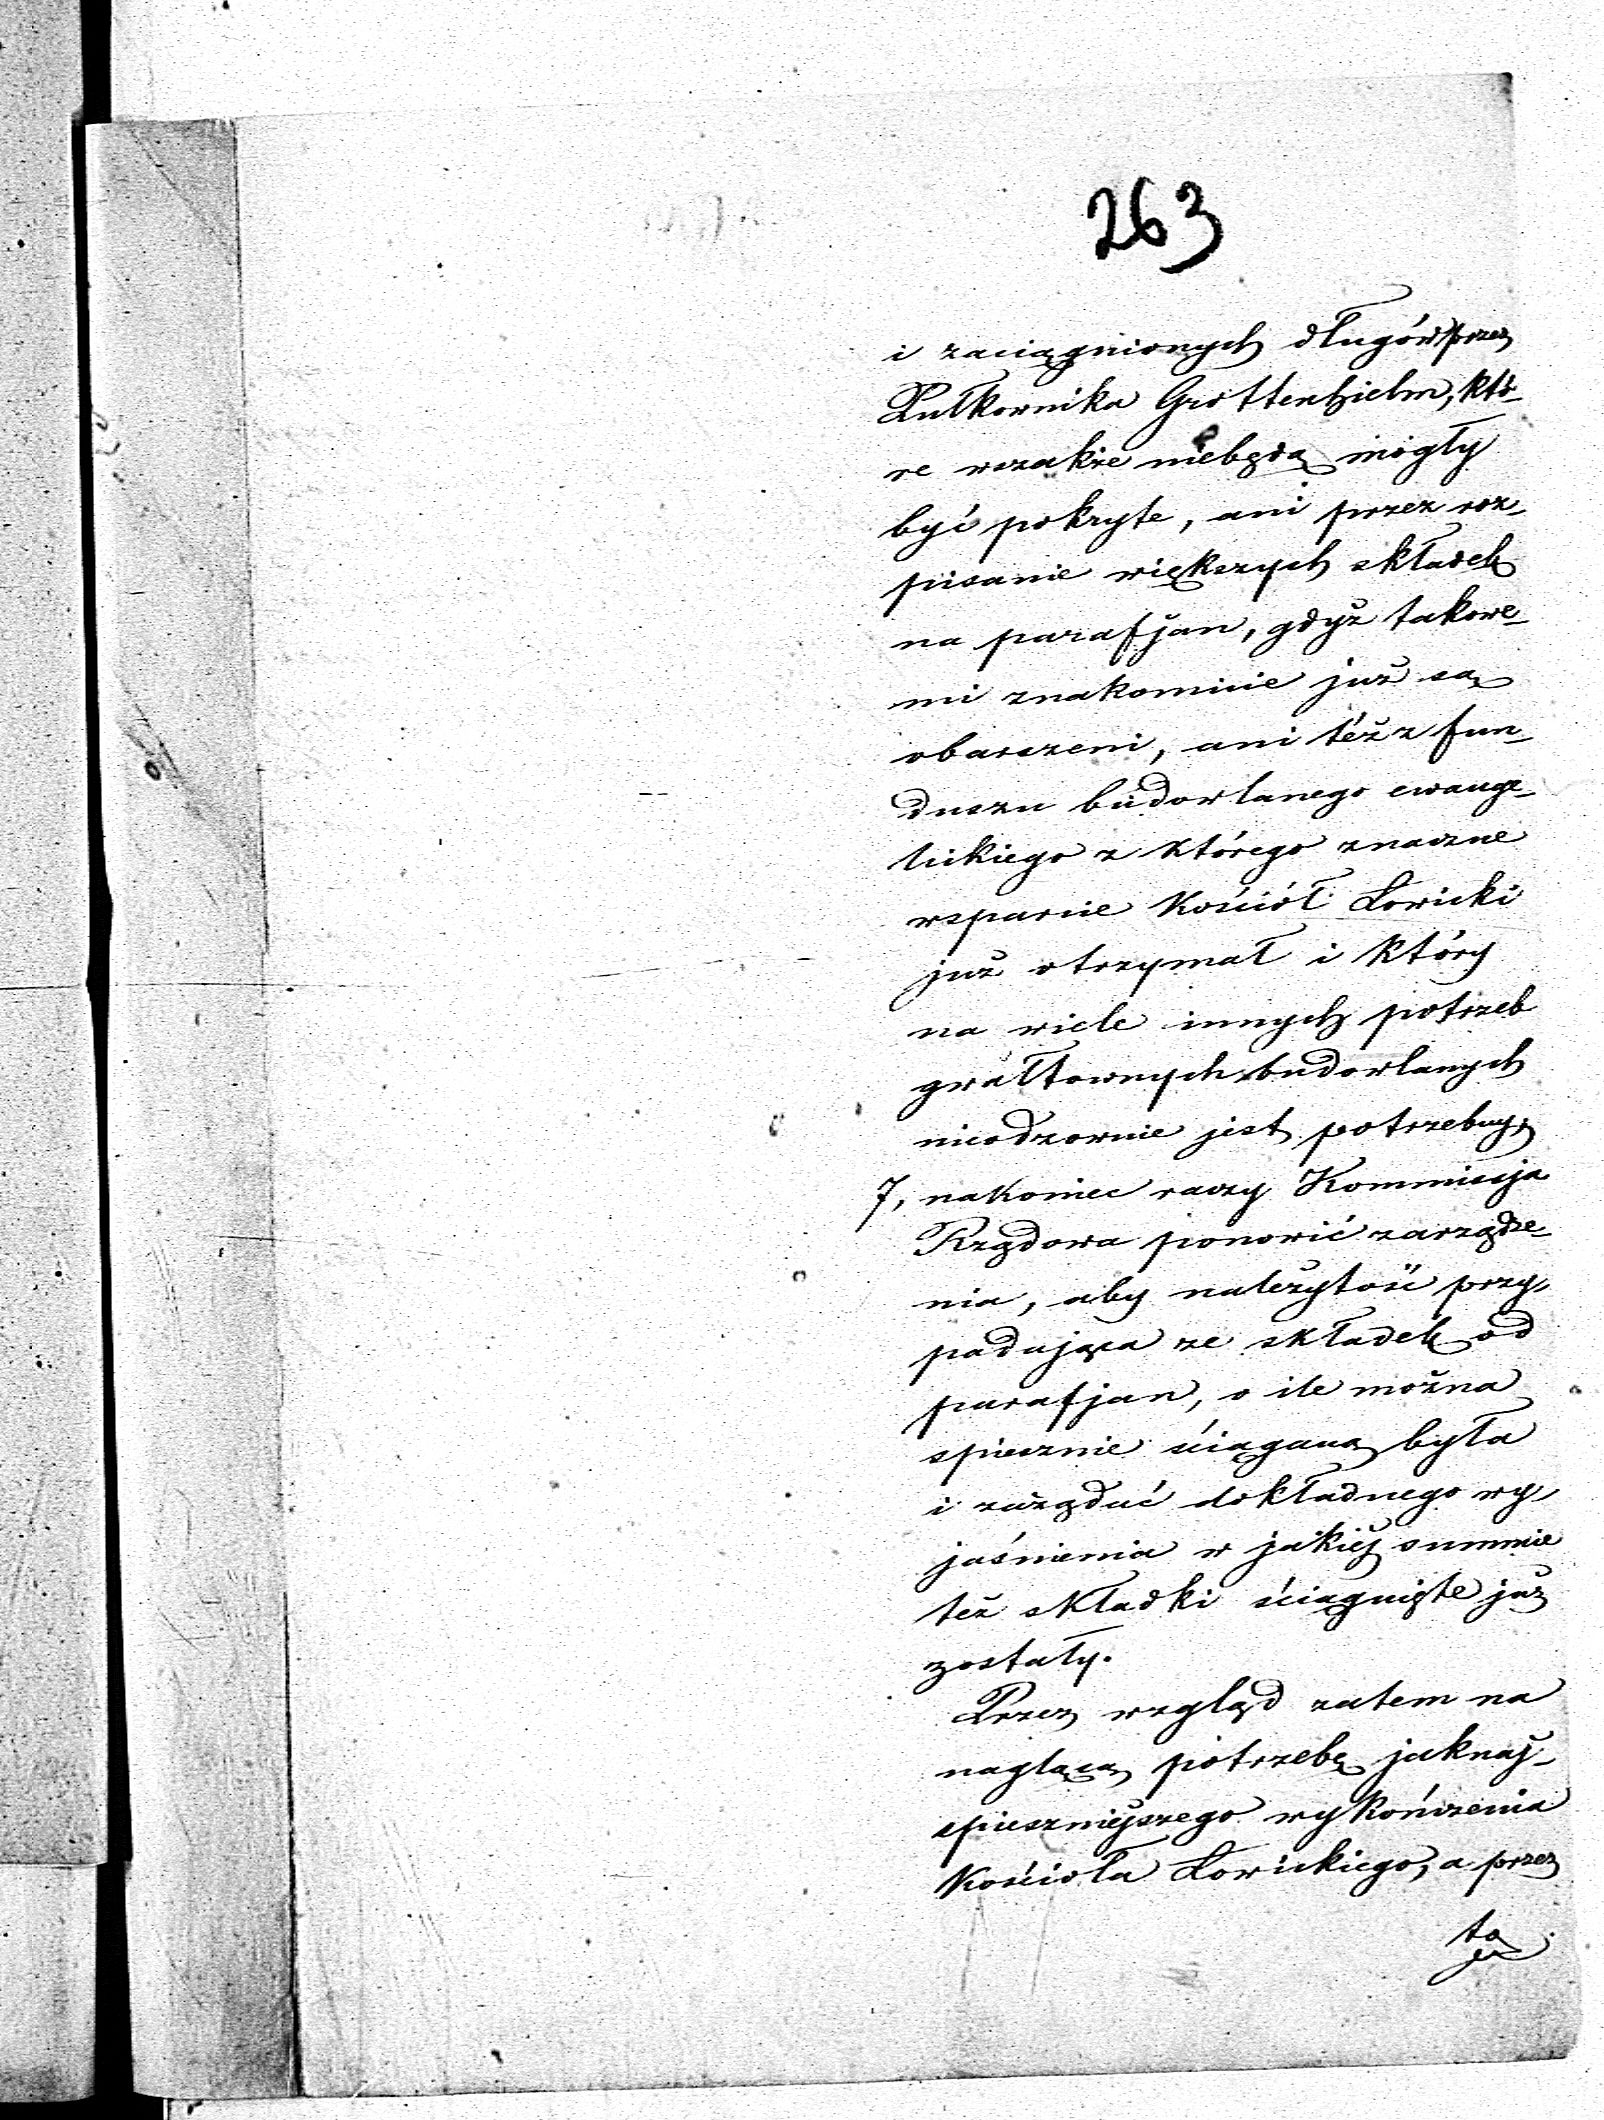 263
i zaciągnionych długów przez
Pułkownika Grottenhielm, któ-
re wszakże niebędą mogły
być pokryte, ani przez roz-
pisanie większych składek
na parafjan, gdyż takowe-
mi znakomicie już są
obarczeni, ani też z fun-
duszu budowlanego ewange-
lickiego z którego znaczne
wsparcie Kościół Łowicki
już otrzymał i który
na wiele innych potrzeb
gwałtownych budowlanych
nieodzownie jest potrzebny,
7, nakoniec raczy Kommissja
Rządowa ponowić zarządze-
nia, aby należytość przy-
padająca ze składek od
parafjan, o ile można
spiesznie ściąganą była
i zażądać dokładnego wy-
jaśnienia w jakiéj summie
też składki ściągnięte już
zostały.
Przez wzgląd zatem na
naglącą potrzebę jaknaj-
spieszniejszego wykończenia
Kościoła Łowickiego, a przez
to